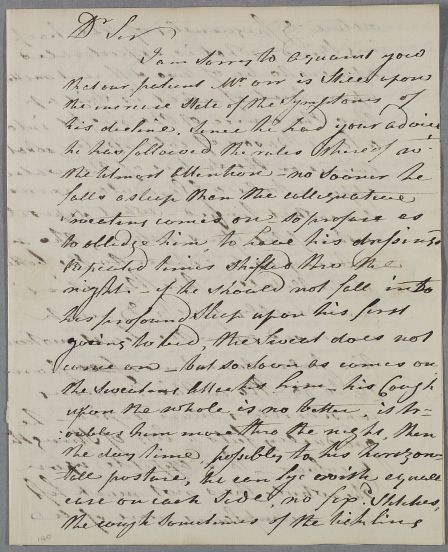 Dr Sir
I am Sorry to aquaint you
that our patient Mr orr is Still upon
the increise State of the Symptoms of
his decline, Since he had your advice
he has followed the rules thereof wt
the utmost attention - no Sooner he
falls a sleep than the colliquative
sweating comes on so profuse as
to obledge him to have his
repeated times shifted thro the
night - if he should not fall into
his profound Sleep upon his first
going to bed, the Sweat does not
come on - but so soon as comes on
the Sweating attacks him - his Cough
upon the whole is no better, is tr-
oubles him more thro the night, then
the day time, possibly to his horizon-
tall posture, he can lye with equall
ease on each Side, no Stitches,
the cough sometimes of the tickling
140